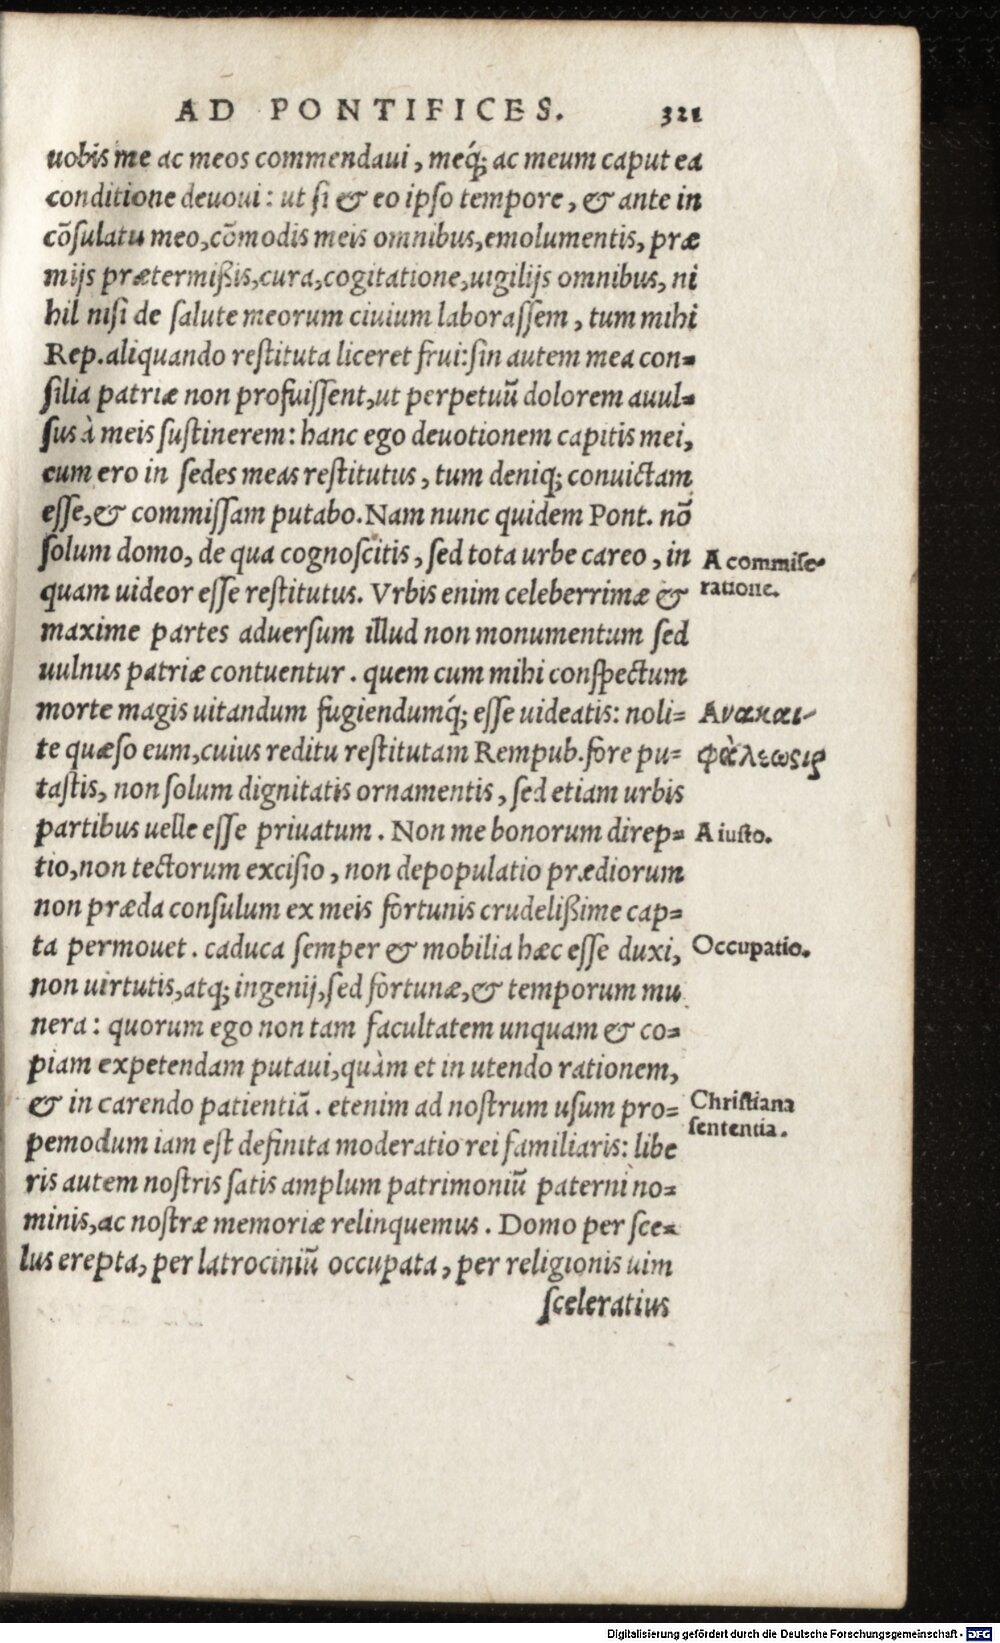 AD PONTIFICES. 321
uobis me ac meos commendaui, meq́; ac meum caput ea
conditione deuoui: ut si & eo ipso tempore, & ante in
cõsulatu meo, cõmodis meis omnibus, emolumentis, præ
mijs prætermißis, cura, cogitatione, uigilijs omnibus, ni
hil nisi de salute meorum ciuium laborassem, tum mihi
Rep. aliquando restituta liceret frui: sin autem mea con-
silia patriæ non profuissent, ut perpetuũ dolorem auul-
sus à meis sustinerem: hanc ego deuotionem capitis mei,
cum ero in sedes meas restitutus, tum deniq; conuictam
esse, & commissam putabo. Nam nunc quidem Pont. nõ
solum domo, de qua cognoscitis, sed tota urbe careo, in
quam uideor esse restitutus. Vrbis enim celeberrimæ &
maxime partes aduersum illud non monumentum sed
uulnus patriæ contuentur. quem cum mihi conspectum
morte magis uitandum fugiendumq́; esse uideatis: noli-
te quæso eum, cuius reditu restitutam Rempub. fore pu-
tastis, non solum dignitatis ornamentis, sed etiam urbis
partibus uelle esse priuatum. Non me bonorum direp-
tio, non tectorum excisio, non depopulatio prædiorum
non præda consulum ex meis fortunis crudelißime cap-
ta permouet. caduca semper & mobilia hæc esse duxi,
non uirtutis, atq; ingenij, sed fortunæ, & temporum mu
nera: quorum ego non tam facultatem unquam & co-
piam expetendam putaui, quàm et in utendo rationem,
& in carendo patientiã. etenim ad nostrum usum pro-
pemodum iam est definita moderatio rei familiaris: libe
ris autem nostris satis amplum patrimoniũ paterni no-
minis, ac nostræ memoriæ relinquemus. Domo per sce-
lus erepta, per latrociniũ occupata, per religionis uim
sceleratius
A commise-
ratione.
Ανακαι-
A iusto.
Occupatio.
Christiana
sententia.
Digitalisierung gefördert durch die Deutsche Forschungsgemeinschaft - DFG